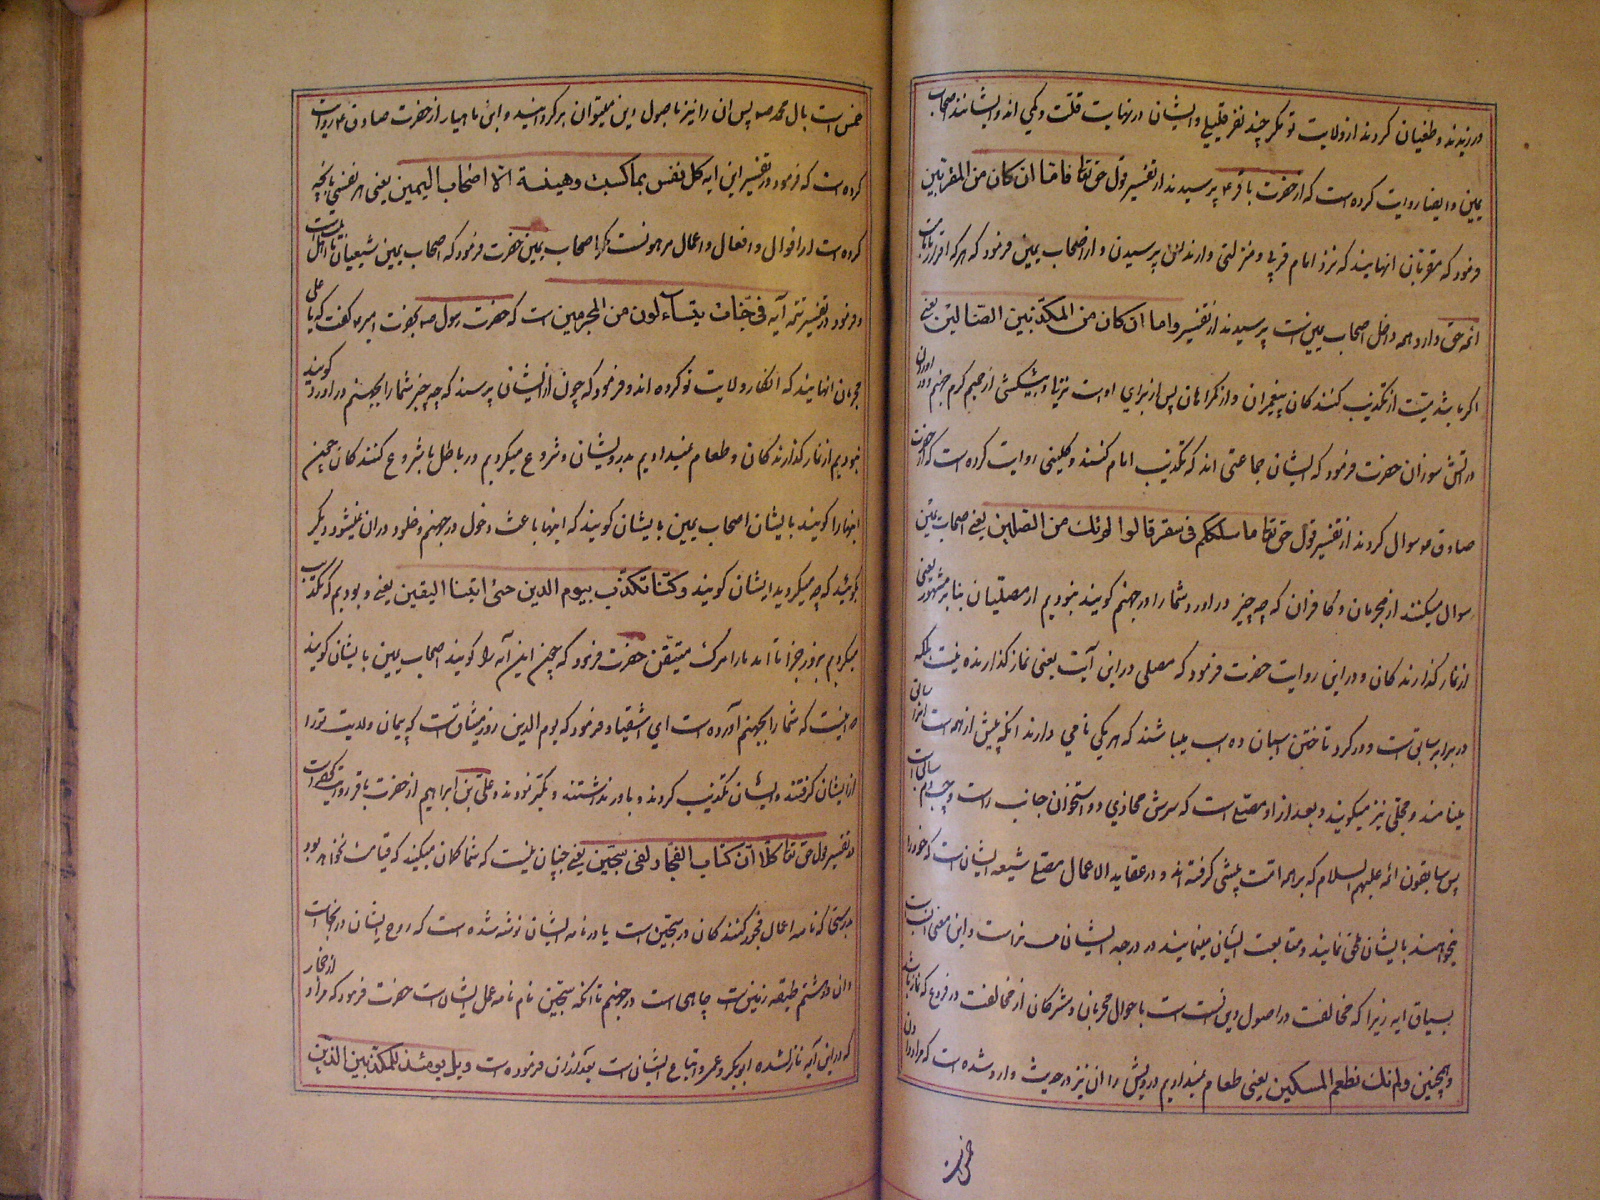 ورزیدند و طغیان کردند از ولایت تو مگر چند نفر قلیلی و ایشان در نهایت قلت و کمی اند و ایشانند اصحاب
یمین و ایضا روایت کرده است که از حضرت باقر ع پرسیدند از تفسیر قول حق تعا فاما ان کان من المقربین
فرمود که مقربان آنهایند که نزد امام قربی و منزلتی دارند پرسیدن و از اصحاب یمین فرمود که هر که اقرار بامامت
ائمه حق دارد همه داخل اصحاب یمین است پرسیدند از تفسیر واما ان کان من المکذبین الضالین یعنی
اگر باشد میت از تکذیب کنندگان پیغمبران و از گمراهان پس از برای اوست نزلی و پیشکشی از حمیم گرم جهنم و در اوردن
در آتش سوزان حضرت فرمود که ایشان جماعتی اند که تکذیب امام کنند و کلینی روایت کرده است که از حضرت
صادق ع سوال کردند از تفسیر قول حق تعا ما سلککم فی سقر قالوا لم نک من المصلین یعنی اصحاب یمین
سوال میکنند از مجرمان و کافران که چه چیز در اورد شما را در جهنم گویند نبودیم از مصلیان بنابر مشهور یعنی
از نماز گذارندگان و در این روایت حضرت فرمود که مصلی در این آیت یعنی نماز گذارنده نیست بلکه
در برابر سابق است و در گرو تاختن اسبان ده اسب میباشند که هر یکی نامی دارند آنکه پیش از همه است انرا سابق
مینامند و مجلی نیز میگویند و بعد از او مصلی است که سرش محاذی دو استخوان جانب راست و چپ دم سابق است
پس سابقون ائمه علیهم السلام که بر همه امت پیشی گرفته اند و در عقاید و الاعمال مصلی شیعه ایشان است که خود را
میخواهند بایشان ملحق نمایند و متابعت ایشان مینمایند و در درجه ایشان و این معنی انسب است
بسیاق ایه زیرا که مخالفت در اصول دین انسب است باحوال مجرمان و مشرکان از مخالفت در فروع که نماز باشد
و همچنین ولم نک نطعم المسکین یعنی طعام نمیدادیم درویش را آن نیز در حدیث وارد شده است که مراد دادن
خمس است بال محمد ص پس ان را نیز باصول دین میتوان برگردانید و ابن ماهیار از حضرت صادق ع روایت
کرده است که فرمود در تفسیر این ایه کل نفس بما کسبت رهینة الا اصحاب الیمین یعنی هر نفسی بانچه
کرده است از اقوال و افعال و اعمال مرهونست مگر اصحاب یمین حضرت فرمود که اصحاب یمین شیعیان ما اهل بیت است
و فرمود در تفسیر تتمه آیه فی جنات یتساءلون من المجرمین است که حضرت رسول ص بحضرت امیر ع گفت که یا علی
مجرمان انهایند که انکار ولایت تو کرده اند و فرمود که چون از ایشان پرسند که چه چیز شما را بجهنم در اورد گویند
نبودیم از نماز گذارندگان و طعام نمیدادیم بدرویشان و شروع میکردیم در باطل با شروع کنندگان چون
اینها را گویند بایشان اصحاب یمین بایشان گویند که اینها باعث دخول در جهنم و خلود در ان نمیشود دیگر
بگوئید که چه میکردید ایشان گویند وکنا نکذب بیوم الدین حتی اتینا الیقین یعنی و بودیم که تکذیب
میکردیم بروز جزا تا آمد ما را مرگ متیقن حضرت فرمود که چون این آیه را گویند اصحاب یمین بایشان گویند
اینست که شما را بجهنم آورده است ای اشقیا و فرمود که یوم الدین روز میثاقست که پیمان ولایت تو را
از ایشان گرفتند و ایشان تکذیب کردند و باور نداشتند و تکبر نمودند و علی بن ابراهیم از حضرت باقر روایت کرده است
در تفسیر قول حق تعا کلا ان کتاب الفجار لفی سجین یعنی چنان نیست که شما گمان میکنید که قیامت نخواهد بود
بدرستیکه نامه اعمال فجور کنندگان در سجین است یا در نامه ایشان نوشته شده است که روح ایشان در انجا است
و ان در هشتم طبقه زمین است چاهی است در جهنم تا انکه سجین نام نامه عمل ایشان است حضرت فرمود که مراد از فجار
که در این آیه نازل شده ابوبکر و عمر و اتباع ایشان است بعد از ان فرموده است ویل یومئذ للمکذبین الذین